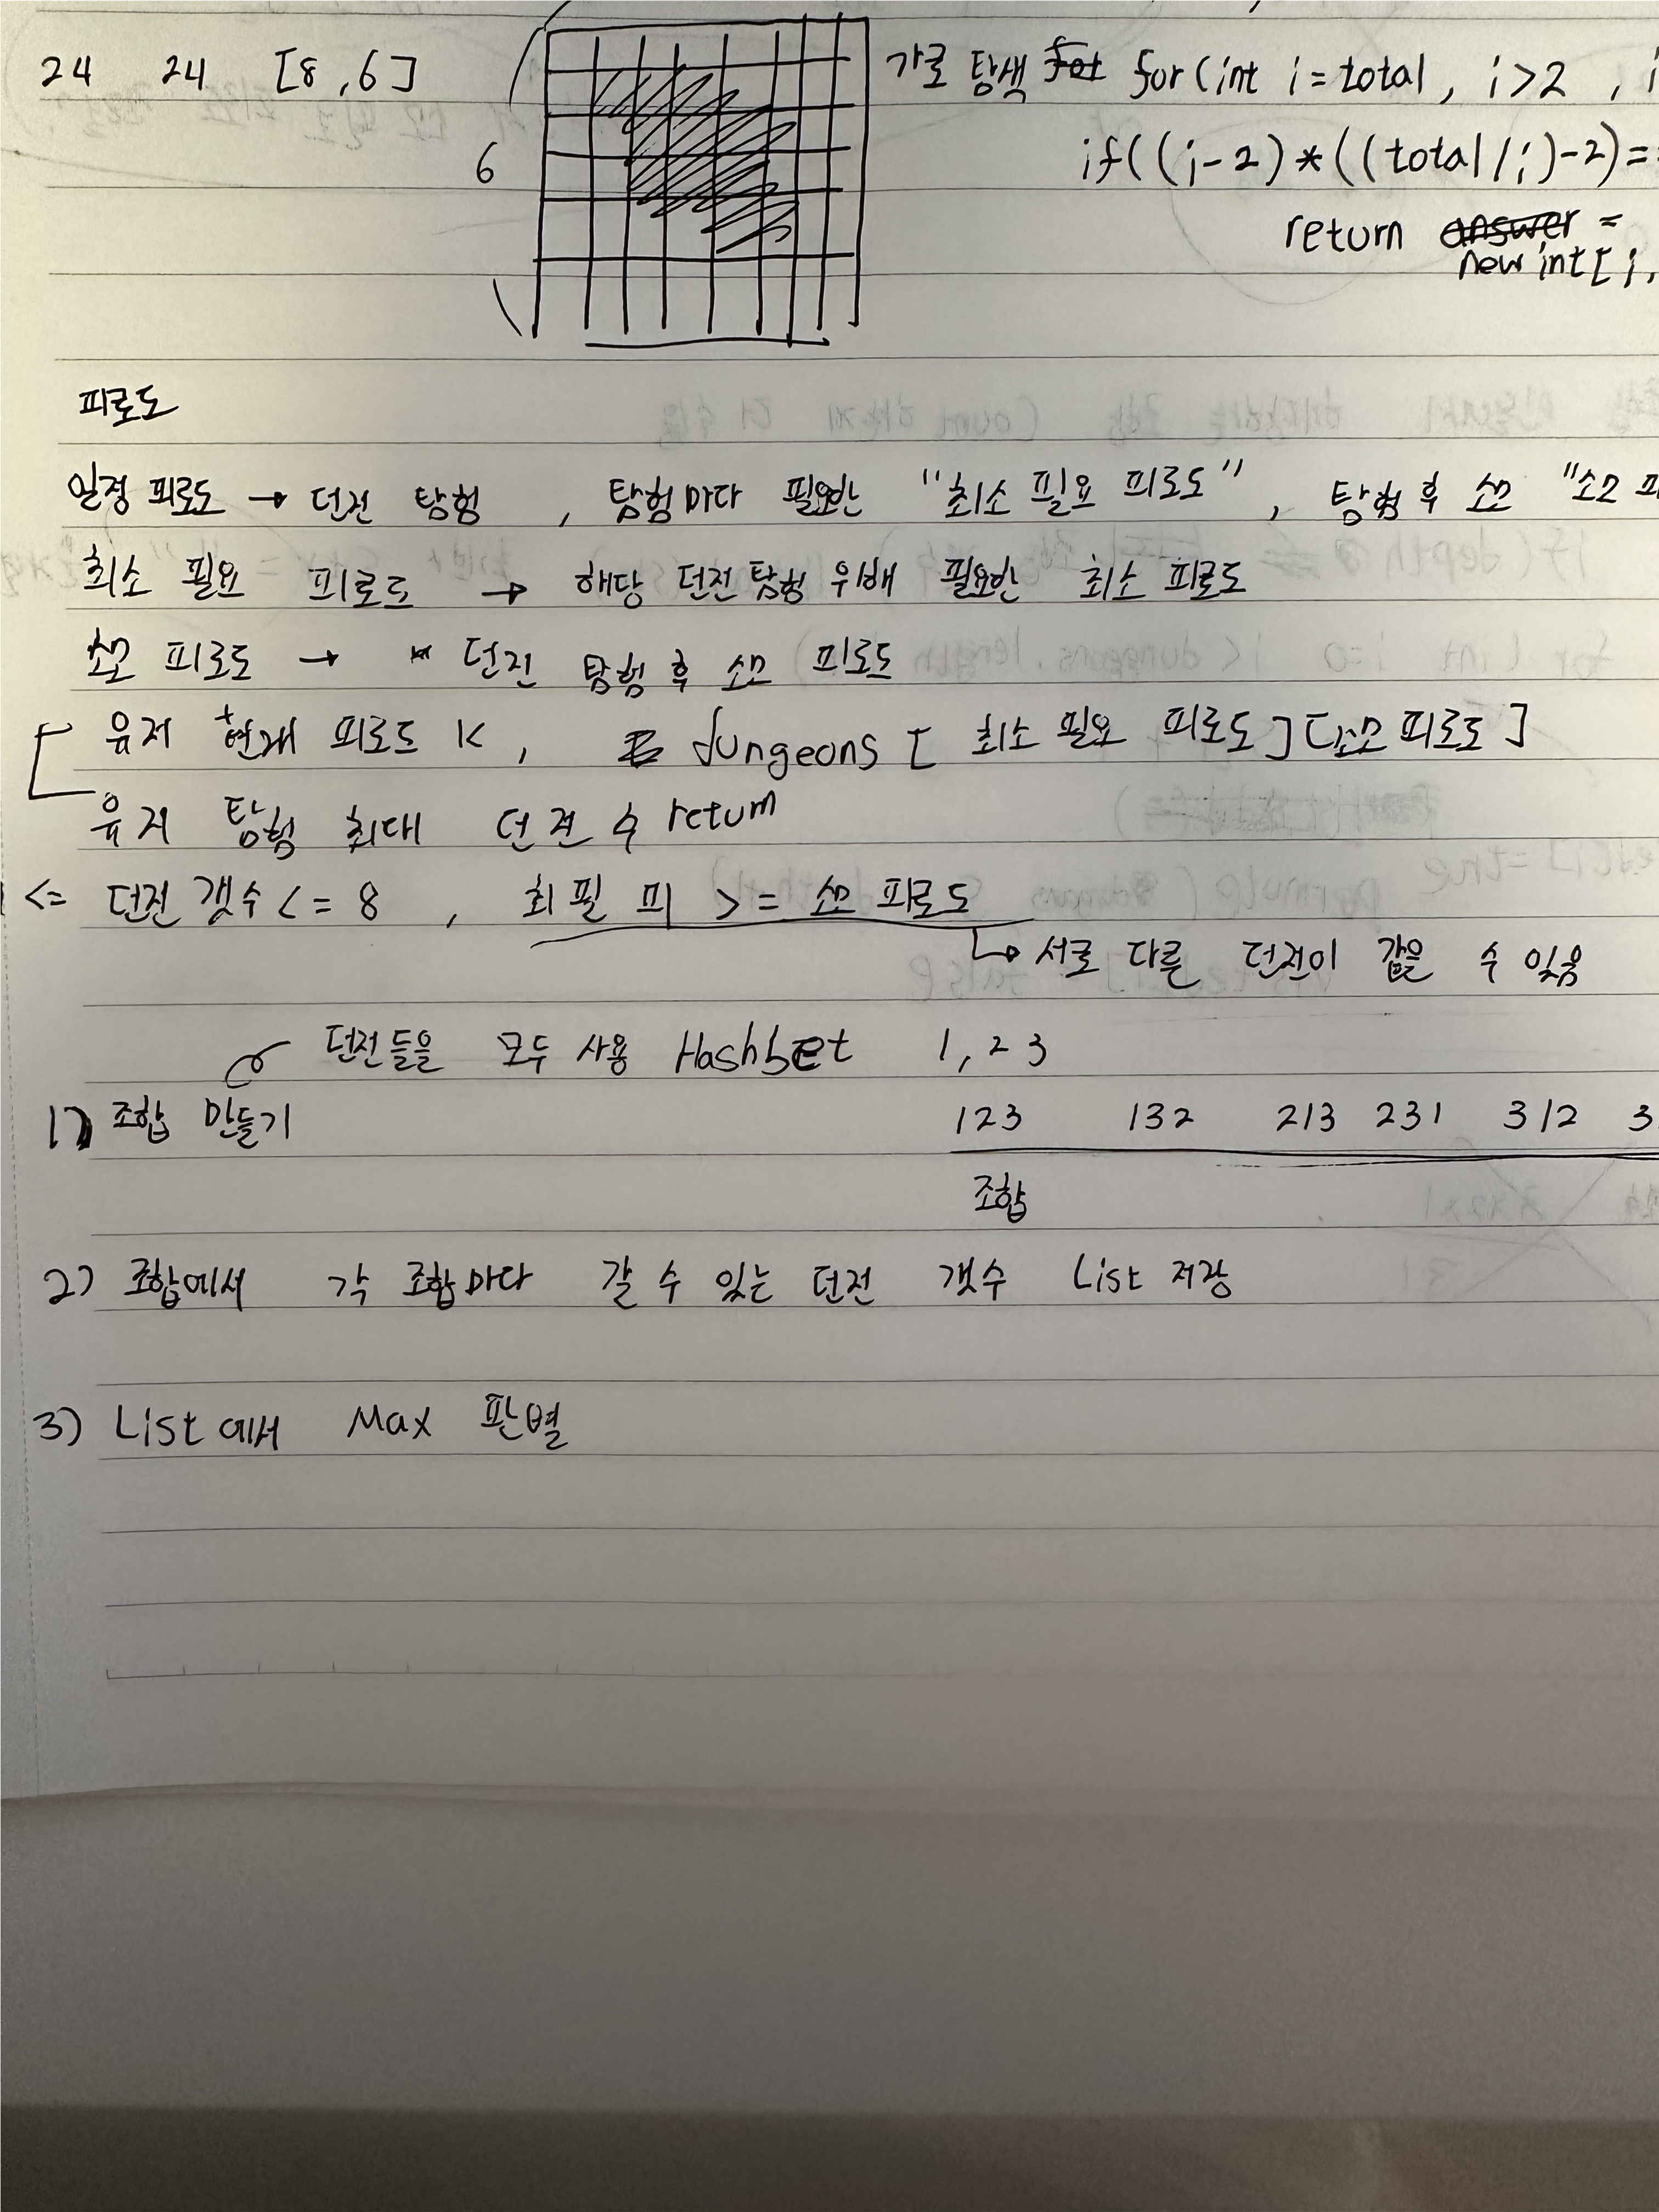 24 24 [8,6]
6
가로 탐색 for(int i=total, i>2, i
if((i-2)*((total/i)-2)==
return answer =
new int[i,
피로도
일정 피로도 → 던전 탐험, 탐험마다 필요한 "최소 필요 피로도", 탐험 후 소모 "소모 피
최소 필요 피로도 → 해당 던전 탐험 위해 필요한 최소 피로도
소모 피로도 → 던전 탐험 후 소모 피로도
유저 현재 피로도 K, dungeons [최소 필요 피로도][소모 피로도]
유저 탐험 최대 던전 수 return
1 <= 던전 갯수 <= 8, 최필피 >= 소모 피로도
↳ 서로 다른 던전이 같을 수 있음
던전들을 모두 사용 HashSet 1,2 3
1) 조합 만들기 123 132 213 231 312 3
조합
2) 조합에서 각 조합마다 갈 수 있는 던전 갯수 List 저장
3) List에서 Max 판별